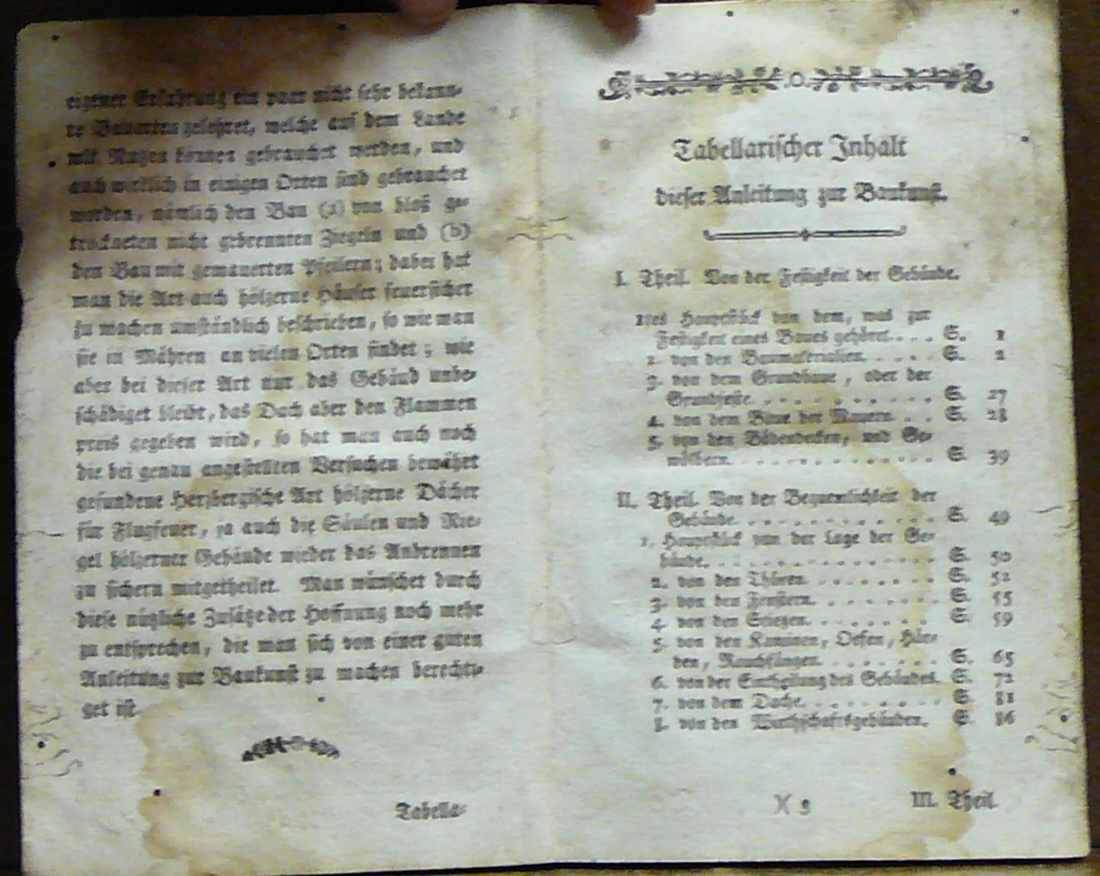 eigener Erfahrung ein paar nicht sehr bekann-
te Bauarten gelehret, welche auf dem Lande
mit Nuzen können gebrauchet werden, und
auch wirklich in einigen Orten sind gebrauchet
worden, nämlich den Bau (a) von bloß ge-
trockneten nicht gebrennten Ziegeln und (b)
den Bau mit gemauerten Pfeilern; dabei hat
man die Art auch hölzerne Häuser feuersicher
zu machen umständlich beschrieben, so wie man
sie in Mähren an vielen Orten findet; wie
aber bei dieser Art nur das Gebäud unbe-
schädiget bleibt, das Dach aber den Flammen
preis gegeben wird, so hat man auch noch
die bei genau angestellten Versuchen bewährt
gefundene Herzbergische Art hölzerne Dächer
für Flugfeuer, ja auch die Säulen und Rie-
gel hölzerner Gebäude wieder das Anbrennen
zu sichern mitgetheilet. Man wünschet durch
diese nüzliche Zusäze der Hoffnung noch mehr
zu entsprechen, die man sich von einer guten
Anleitung zur Baukunst zu machen berechti-
get ist.
Tabella-
Tabellarischer Inhalt
dieser Anleitung zur Baukunst.
I. Theil. Von der Festigkeit der Gebäude.
1tes Hauptstück von dem, was zur
Festigkeit eines Baues gehöret. . . . S. 1
2. von den Baumaterialien. . . . . S. 2
3. von dem Grundbaue, oder der
Grundfeste. . . . . . . . . . . . . S. 27
4. von dem Baue der Mauern. . . S. 28
5. von den Bödendecken, und Ge-
wölbern. . . . . . . . . . . . . . S. 39
II. Theil. Von der Bequemlichkeit der
Gebäude. . . . . . . . . . . . . S. 49
1. Hauptstück von der Lage der Ge-
bäude. . . . . . . . . . . . . . . S. 50
2. von den Thüren. . . . . . . . . S. 52
3. von den Fenstern. . . . . . . . . S. 55
4. von den Stiegen. . . . . . . . . S. 59
5. von den Kaminen, Oefen, Här-
den, Rauchfängen. . . . . . . . . S. 65
6. von der Eintheilung des Gebäudes. S. 72
7. von dem Dache. . . . . . . . . . S. 81
8. von den Wirthschaftsgebäuden. S. 86
X 3 III. Theil.